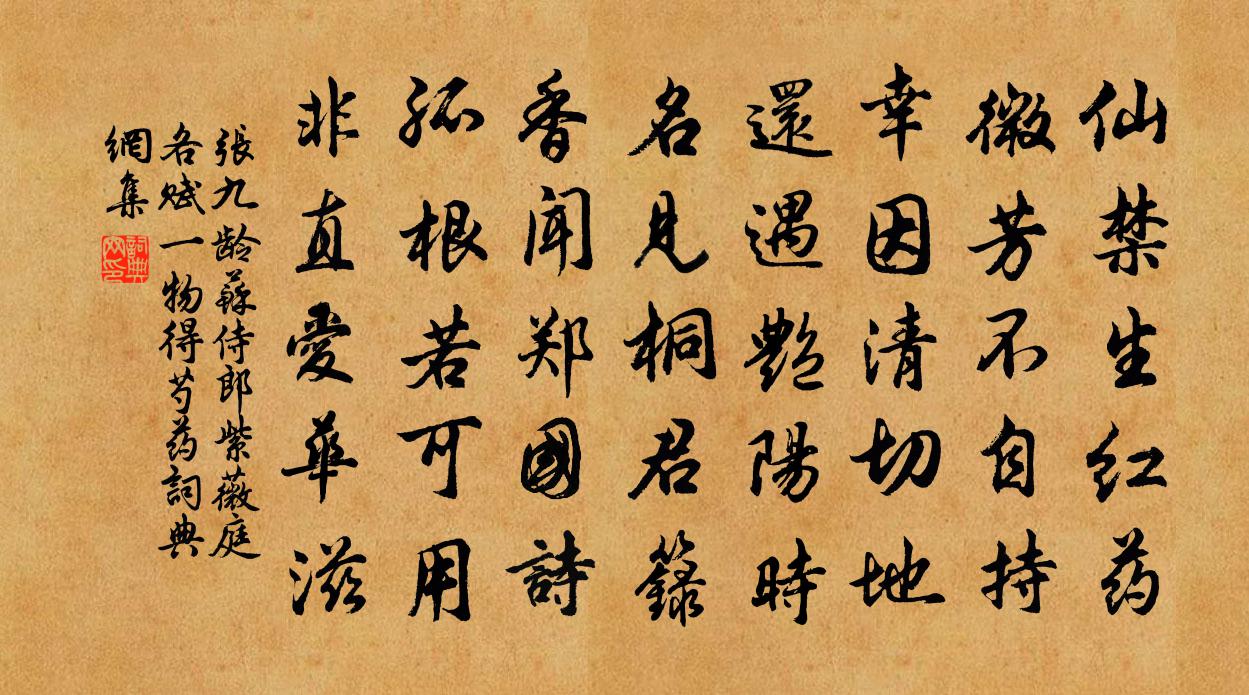 仙禁生红药
微芳不自持
幸因清切地
還遇艷陽時
名見桐君籙
香聞郑國詩
孤根若可用
非直愛華滋
張九齡蘇侍郎紫薇庭
各赋一物得芍药詞典
網集
詞典
网印